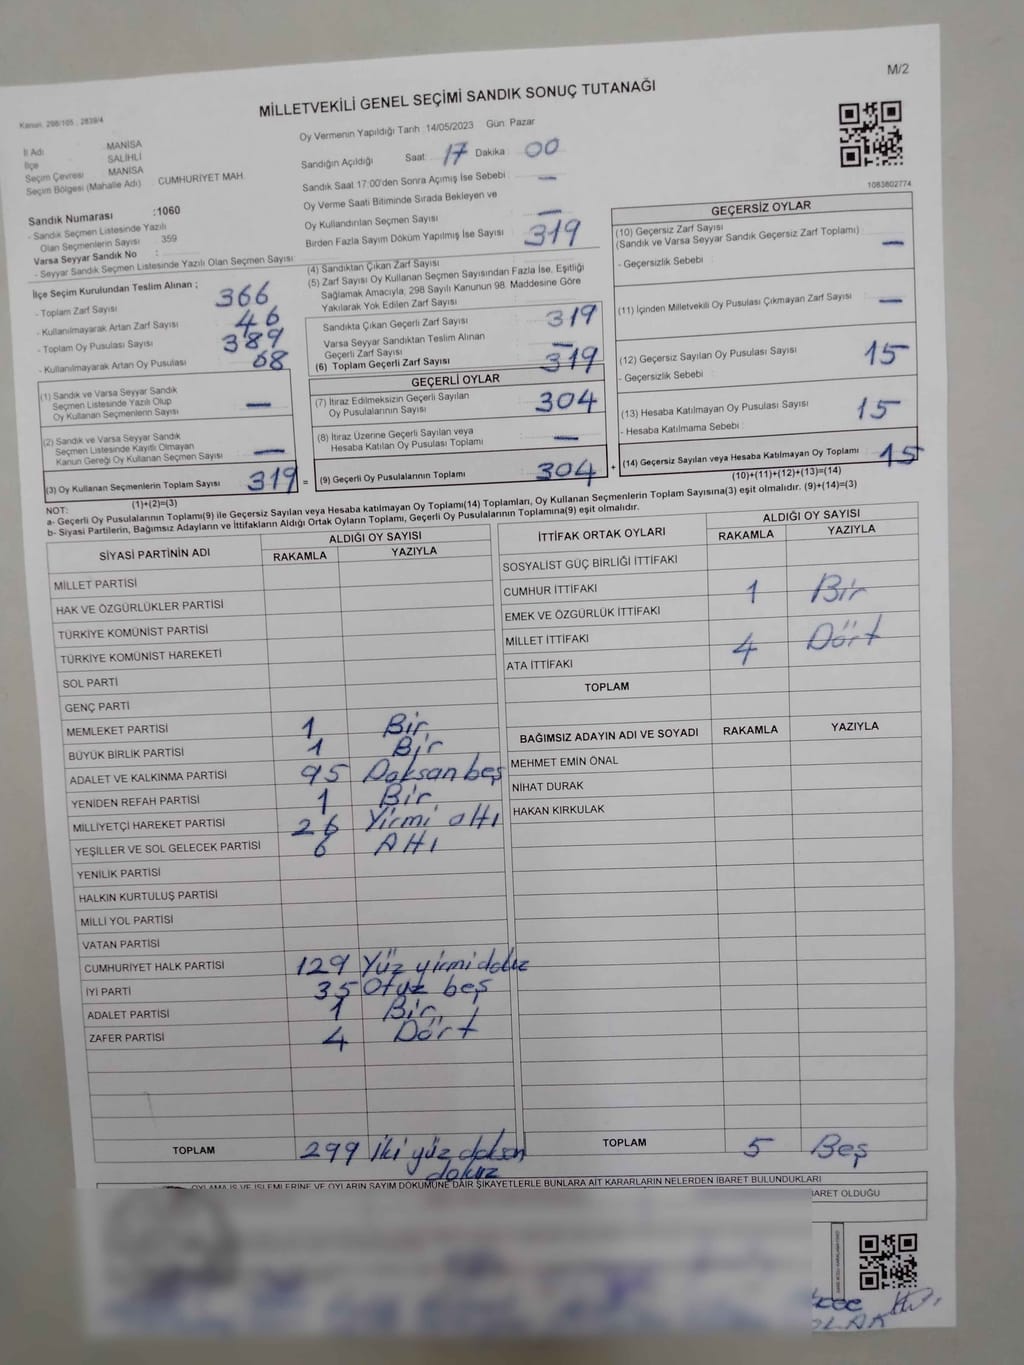 M/2
MİLLETVEKİLİ GENEL SEÇİMİ SANDIK SONUÇ TUTANAĞI
Kanun, 298/105, 2839/4
Oy Vermenin Yapıldığı Tarih : 14/05/2023 Gün: Pazar
İl Adı MANİSA
İlçe SALİHLİ
Seçim Çevresi MANİSA
Seçim Bölgesi (Mahalle Adı) CUMHURİYET MAH.
Sandığın Açıldığı Saat: 17 Dakika : 00
Sandık Saat 17:00'den Sonra Açımış İse Sebebi : —
Oy Verme Saati Bitiminde Sırada Bekleyen ve
Oy Kullandırılan Seçmen Sayısı —
Birden Fazla Sayım Döküm Yapılmış İse Sayısı 319
1083802774
Sandık Numarası :1060
- Sandık Seçmen Listesinde Yazılı
Olan Seçmenlerin Sayısı : 359
Varsa Seyyar Sandık No :
- Seyyar Sandık Seçmen Listesinde Yazılı Olan Seçmen Sayısı
İlçe Seçim Kurulundan Teslim Alınan ;
- Toplam Zarf Sayısı 366
- Kullanılmayarak Artan Zarf Sayısı 46
- Toplam Oy Pusulası Sayısı 389
- Kullanılmayarak Artan Oy Pusulası 68
(1) Sandık ve Varsa Seyyar Sandık
Seçmen Listesinde Yazılı Olup
Oy Kullanan Seçmenlerin Sayısı —
(2) Sandık ve Varsa Seyyar Sandık
Seçmen Listesinde Kayıtlı Olmayan
Kanun Gereği Oy Kullanan Seçmen Sayısı —
(3) Oy Kullanan Seçmenlerin Toplam Sayısı 319 =
(1)+(2)=(3)
(4) Sandıktan Çıkan Zarf Sayısı
(5) Zarf Sayısı Oy Kullanan Seçmen Sayısından Fazla İse, Eşitliği
Sağlamak Amacıyla, 298 Sayılı Kanunun 98. Maddesine Göre
Yakılarak Yok Edilen Zarf Sayısı :
Sandıkta Çıkan Geçerli Zarf Sayısı 319
Varsa Seyyar Sandıktan Teslim Alınan
Geçerli Zarf Sayısı —
(6) Toplam Geçerli Zarf Sayısı 319
GEÇERLİ OYLAR
(7) İtiraz Edilmeksizin Geçerli Sayılan
Oy Pusulalarının Sayısı 304
(8) İtiraz Üzerine Geçerli Sayılan veya
Hesaba Katılan Oy Pusulası Toplamı —
(9) Geçerli Oy Pusulalarının Toplamı 304 +
GEÇERSİZ OYLAR
(10) Geçersiz Zarf Sayısı
(Sandık ve Varsa Seyyar Sandık Geçersiz Zarf Toplamı) —
- Geçersizlik Sebebi :
(11) İçinden Milletvekili Oy Pusulası Çıkmayan Zarf Sayısı —
(12) Geçersiz Sayılan Oy Pusulası Sayısı 15
- Geçersizlik Sebebi :
(13) Hesaba Katılmayan Oy Pusulası Sayısı 15
- Hesaba Katılmama Sebebi :
(14) Geçersiz Sayılan veya Hesaba Katılmayan Oy Toplamı 15
(10)+(11)+(12)+(13)=(14)
NOT:
a- Geçerli Oy Pusulalarının Toplamı(9) ile Geçersiz Sayılan veya Hesaba katılmayan Oy Toplamı(14) Toplamları, Oy Kullanan Seçmenlerin Toplam Sayısına(3) eşit olmalıdır. (9)+(14)=(3)
b- Siyasi Partilerin, Bağımsız Adayların ve İttifakların Aldığı Ortak Oyların Toplamı, Geçerli Oy Pusulalarının Toplamına(9) eşit olmalıdır.
SİYASİ PARTİNİN ADI ALDIĞI OY SAYISI
RAKAMLA YAZIYLA
MİLLET PARTİSİ
HAK VE ÖZGÜRLÜKLER PARTİSİ
TÜRKİYE KOMÜNİST PARTİSİ
TÜRKİYE KOMÜNİST HAREKETİ
SOL PARTİ
GENÇ PARTİ
MEMLEKET PARTİSİ 1 Bir
BÜYÜK BİRLİK PARTİSİ 1 Bir
ADALET VE KALKINMA PARTİSİ 95 Doksan beş
YENİDEN REFAH PARTİSİ 1 Bir
MİLLİYETÇİ HAREKET PARTİSİ 26 Yirmi altı
YEŞİLLER VE SOL GELECEK PARTİSİ 6 Altı
YENİLİK PARTİSİ
HALKIN KURTULUŞ PARTİSİ
MİLLİ YOL PARTİSİ
VATAN PARTİSİ
CUMHURİYET HALK PARTİSİ 129 Yüz yirmi dokuz
İYİ PARTİ 35 Otuz beş
ADALET PARTİSİ 1 Bir
ZAFER PARTİSİ 4 Dört
TOPLAM 299 İki yüz doksan
dokuz
İTTİFAK ORTAK OYLARI ALDIĞI OY SAYISI
RAKAMLA YAZIYLA
SOSYALİST GÜÇ BİRLİĞİ İTTİFAKI
CUMHUR İTTİFAKI 1 Bir
EMEK VE ÖZGÜRLÜK İTTİFAKI
MİLLET İTTİFAKI 4 Dört
ATA İTTİFAKI
TOPLAM
BAĞIMSIZ ADAYIN ADI VE SOYADI RAKAMLA YAZIYLA
MEHMET EMİN ÖNAL
NİHAT DURAK
HAKAN KIRKULAK
TOPLAM 5 Beş
OYLAMA İŞ VE İŞLEMLERİNE VE OYLARIN SAYIM DÖKÜMÜNE DAİR ŞİKAYETLERLE BUNLARA AİT KARARLARIN NELERDEN İBARET BULUNDUKLARI
BARET OLDUĞU